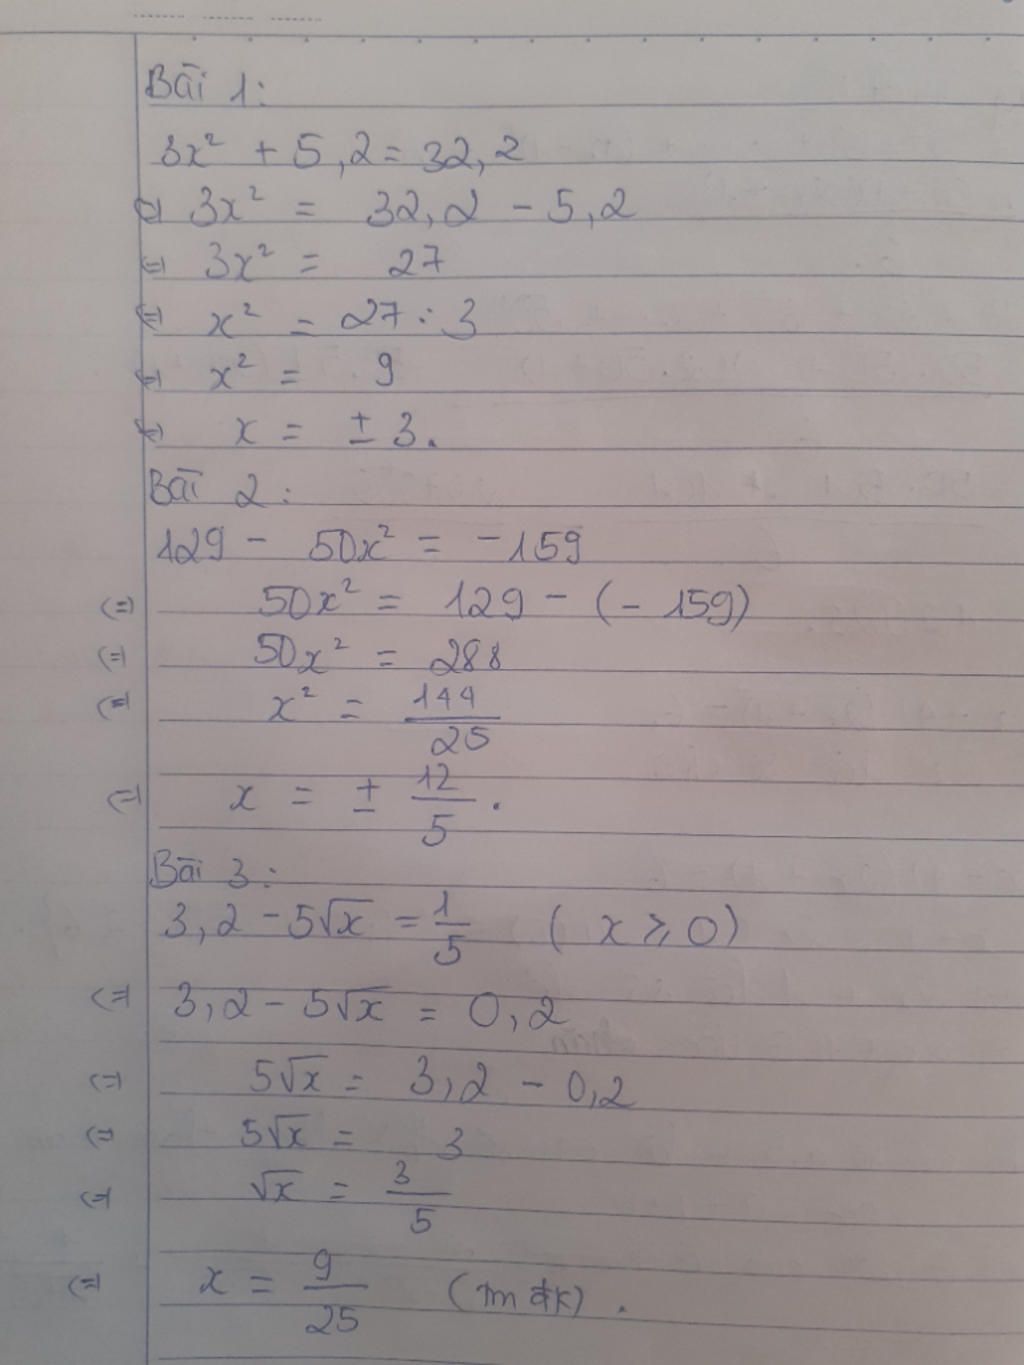 Bài 1:
3x² + 5,2 = 32,2
⇔ 3x² = 32,2 - 5,2
⇔ 3x² = 27
⇔ x² = 27 : 3
⇔ x² = 9
⇔ x = ± 3.
Bài 2:
129 - 50x² = -159
⇔ 50x² = 129 - (-159)
⇔ 50x² = 288
⇔ x² = 144/25
⇔ x = ± 12/5.
Bài 3:
3,2 - 5√x = 1/5 (x ⩾ 0)
⇔ 3,2 - 5√x = 0,2
⇔ 5√x = 3,2 - 0,2
⇔ 5√x = 3
⇔ √x = 3/5
⇔ x = 9/25 (tm đk).